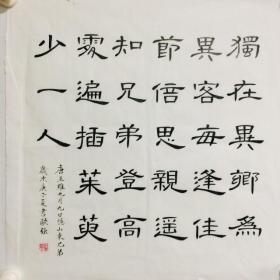 獨在異鄉為
異客每逢佳
節倍思親遥
知兄弟登高
處遍插茱萸
少一人
唐王維九月九日憶山東兄弟